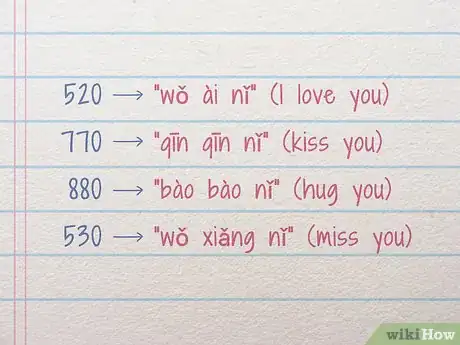 520 → "wǒ ài nǐ" (I love you)
770 → "qīn qīn nǐ" (kiss you)
880 → "bào bào nǐ" (hug you)
530 → "wǒ xiǎng nǐ" (miss you)
wikiHow